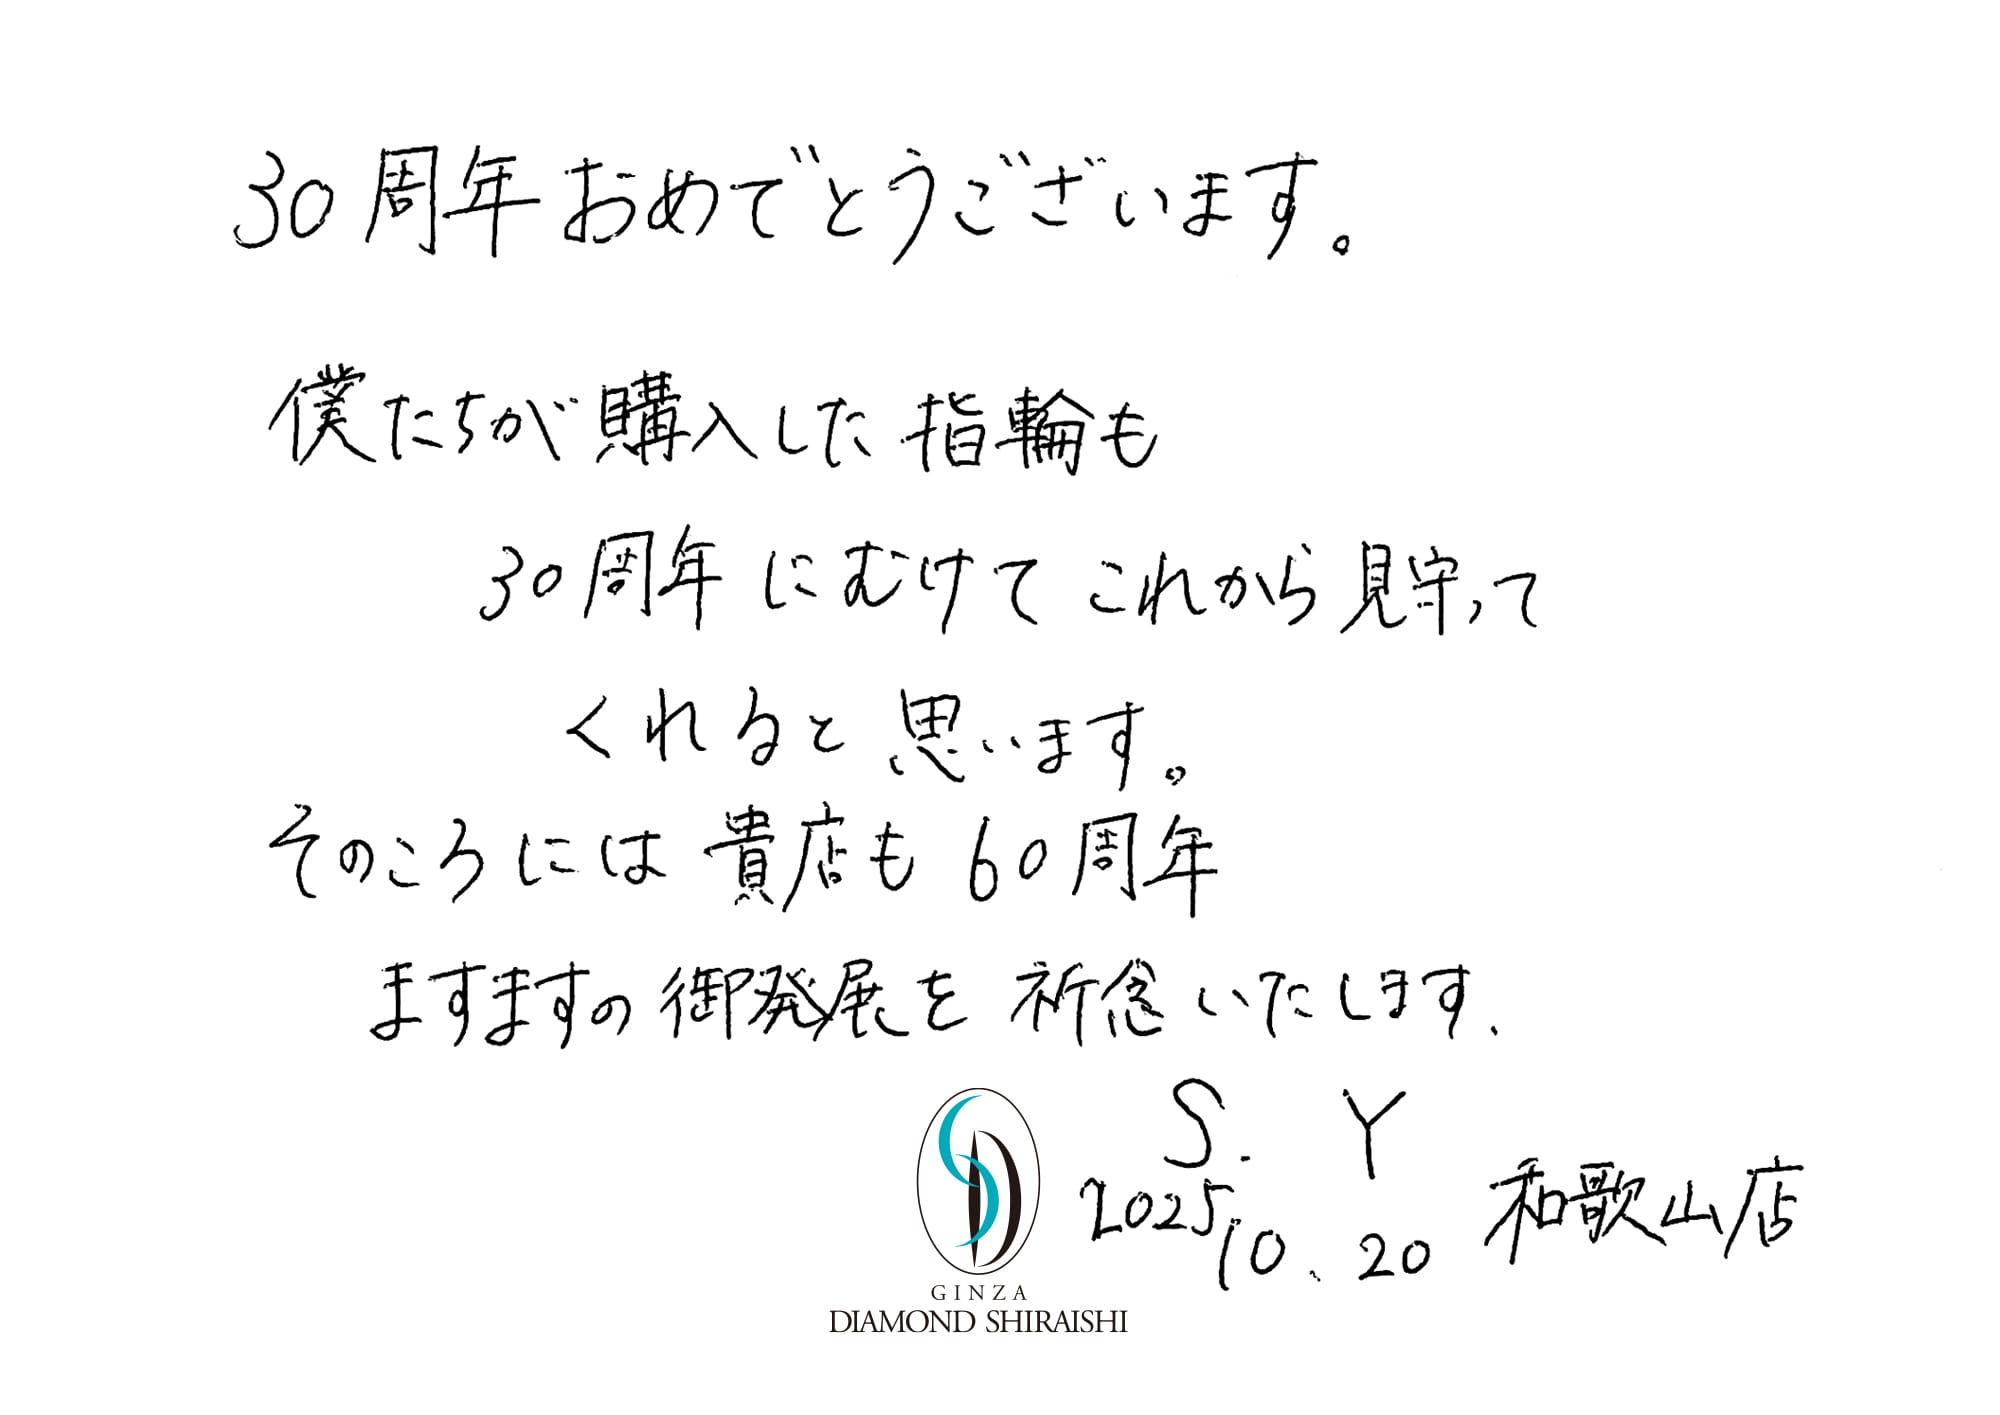 30周年おめでとうございます。
僕たちが購入した指輪も
30周年にむけてこれから見守って
くれると思います。
そのころには貴店も60周年
ますますの御発展を祈念いたします.
S. Y
2025, 10. 20 和歌山店
GINZA
DIAMOND SHIRAISHI